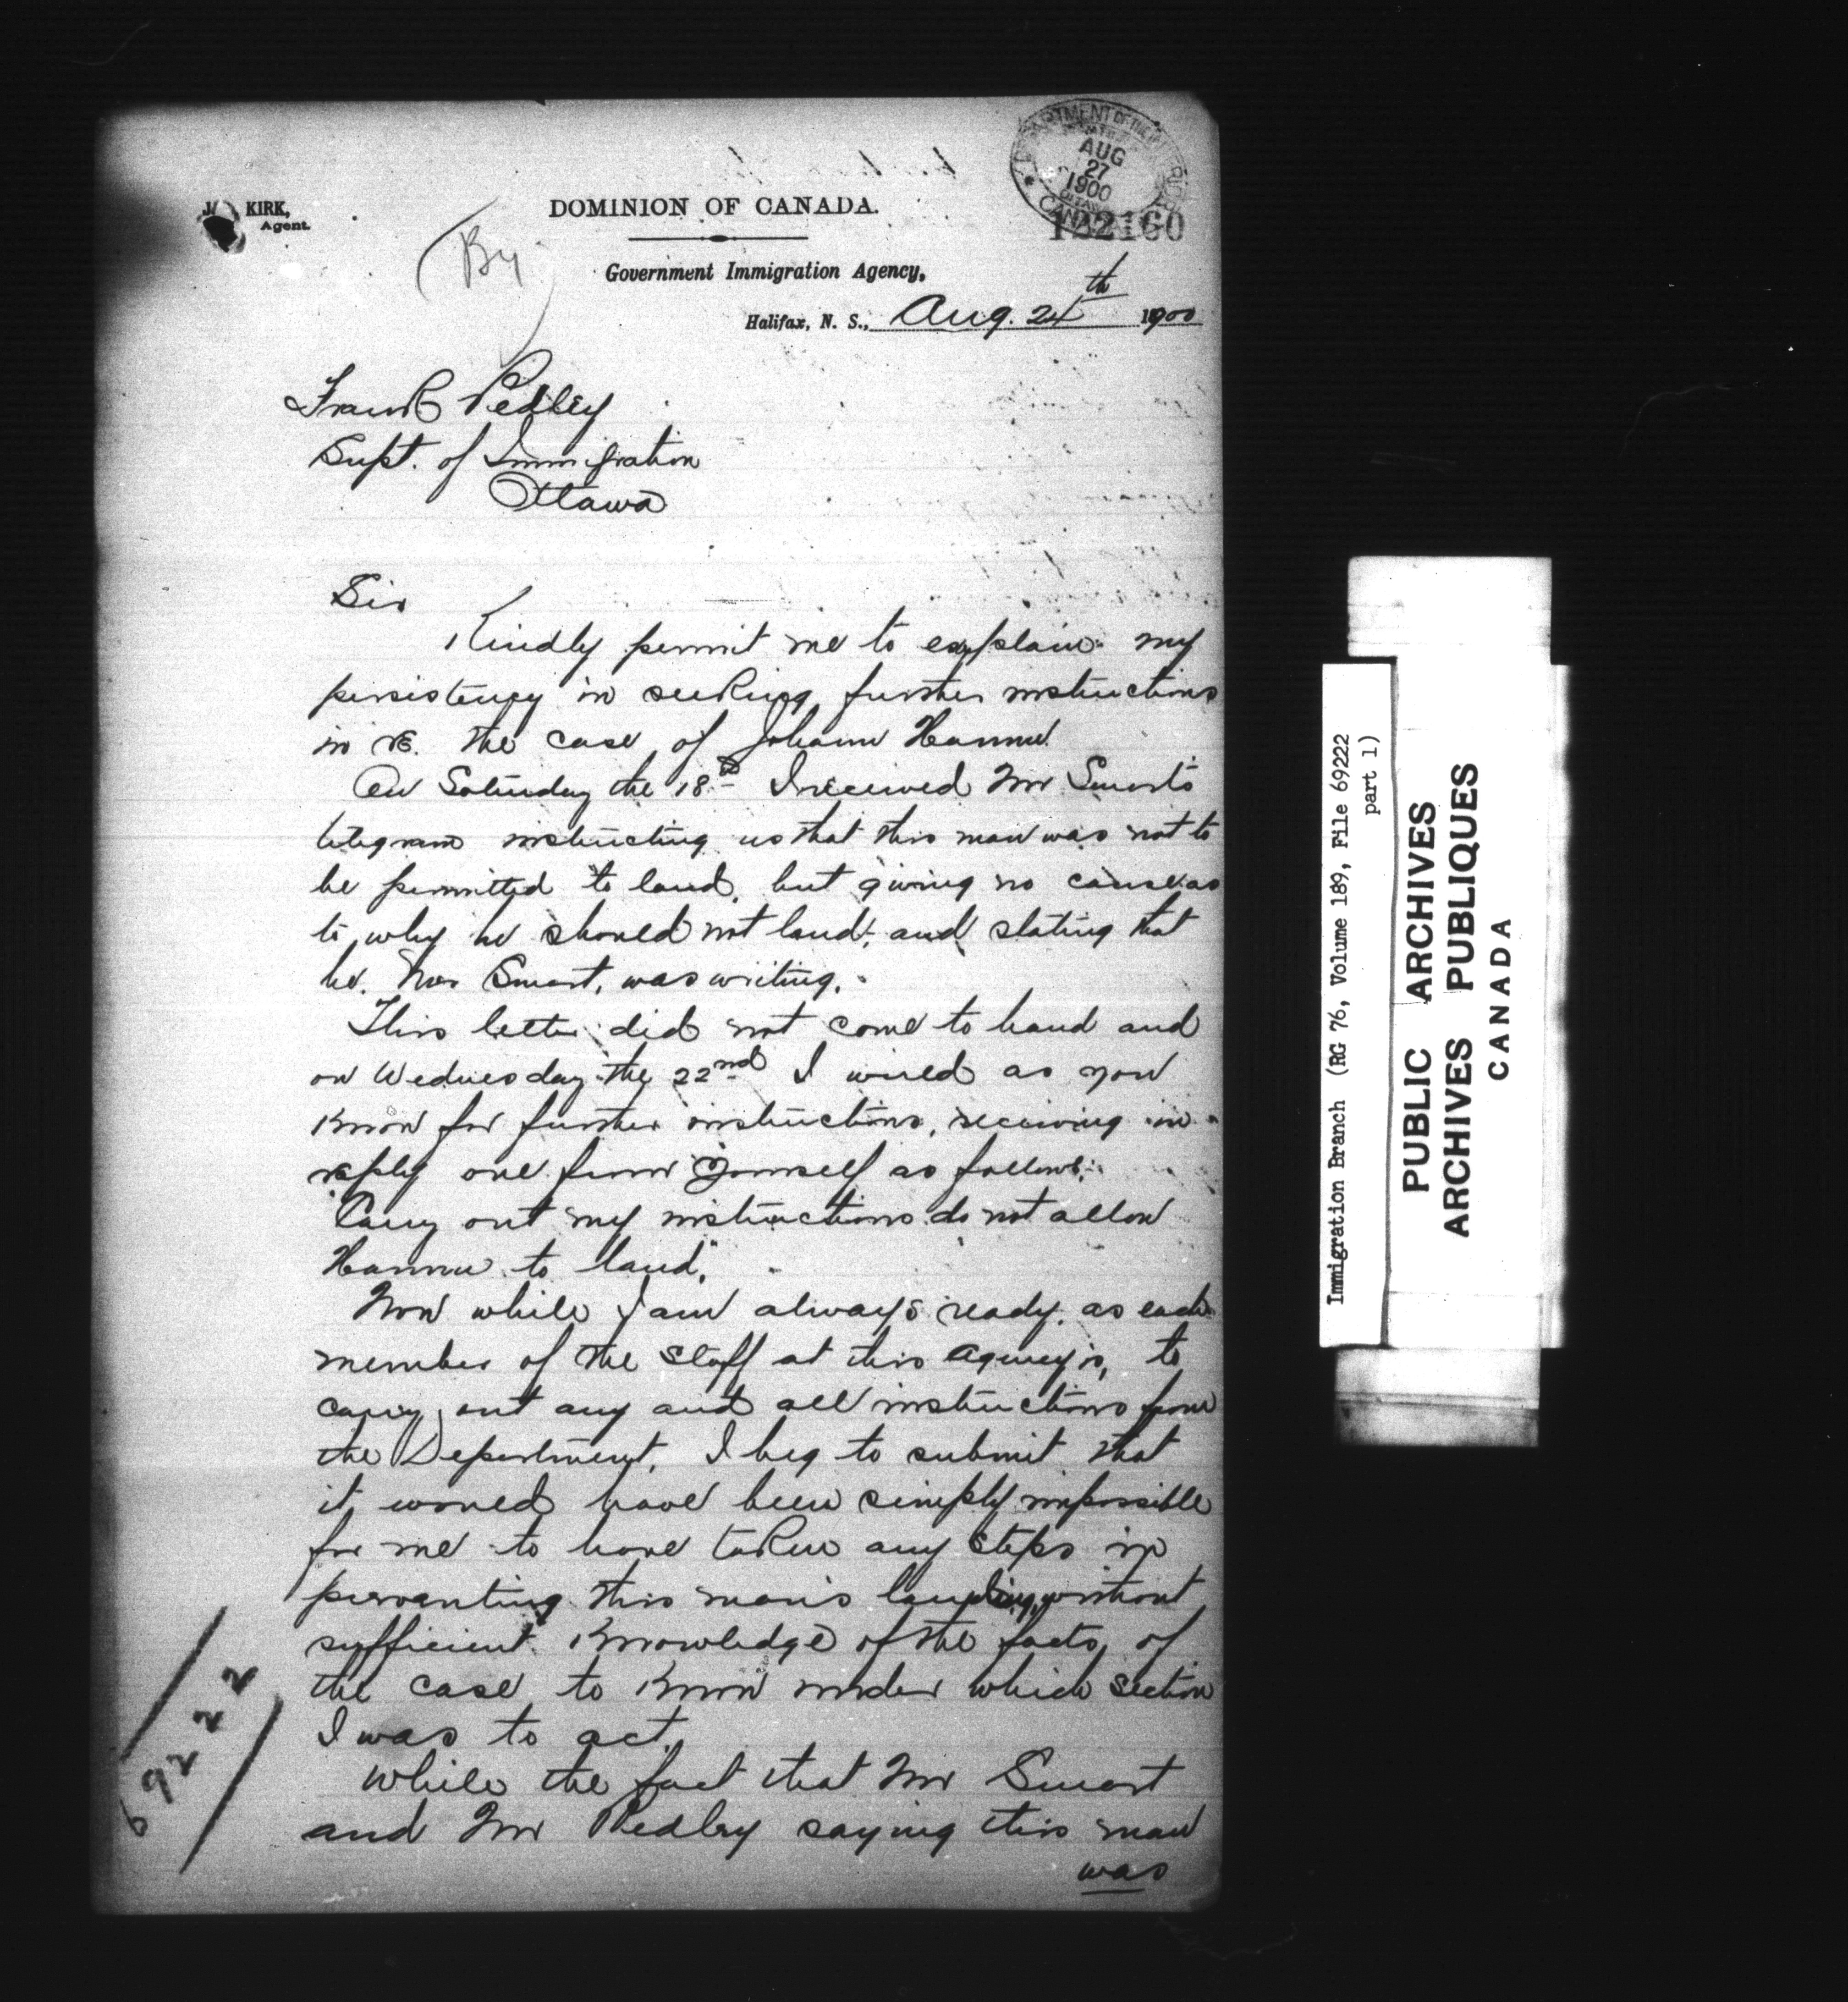 DEPARTMENT OF THE INTERIOR
AUG
27
1900
OTTAWA
CANADA
122160
KIRK,
Agent.
DOMINION OF CANADA.
(By)
Government Immigration Agency,
Halifax, N. S., Aug. 24th 1900
Frank Pedley
Supt. of Immigration
Ottawa
Sir
Kindly permit me to explain my
persistency in seeking further instructions
in re. the case of Johann Hannu.
On Saturday the 18th I received Mr Smart's
telegram instructing us that this man was not to
be permitted to land, but giving no cause as
to why he should not land, and stating that
he, Mr Smart, was writing.
This letter did not come to hand and
on Wednesday the 22nd I wired as you
know for further instructions, receiving in
reply one from yourself as follows:
"Carry out my instructions do not allow
Hannu to land."
Now while I am always ready, as each
member of the staff at this Agency is, to
carry out any and all instructions from
the Department, I beg to submit that
it would have been simply impossible
for me to have taken any steps in
prevanting this man's landing, without
sufficient knowledge of the facts of
the case to know under which section
I was to act.
While the fact that Mr Smart
and Mr Pedley saying this man
was
69222
Immigration Branch (RG 76, Volume 189, File 69222
part 1)
PUBLIC ARCHIVES
ARCHIVES PUBLIQUES
CANADA